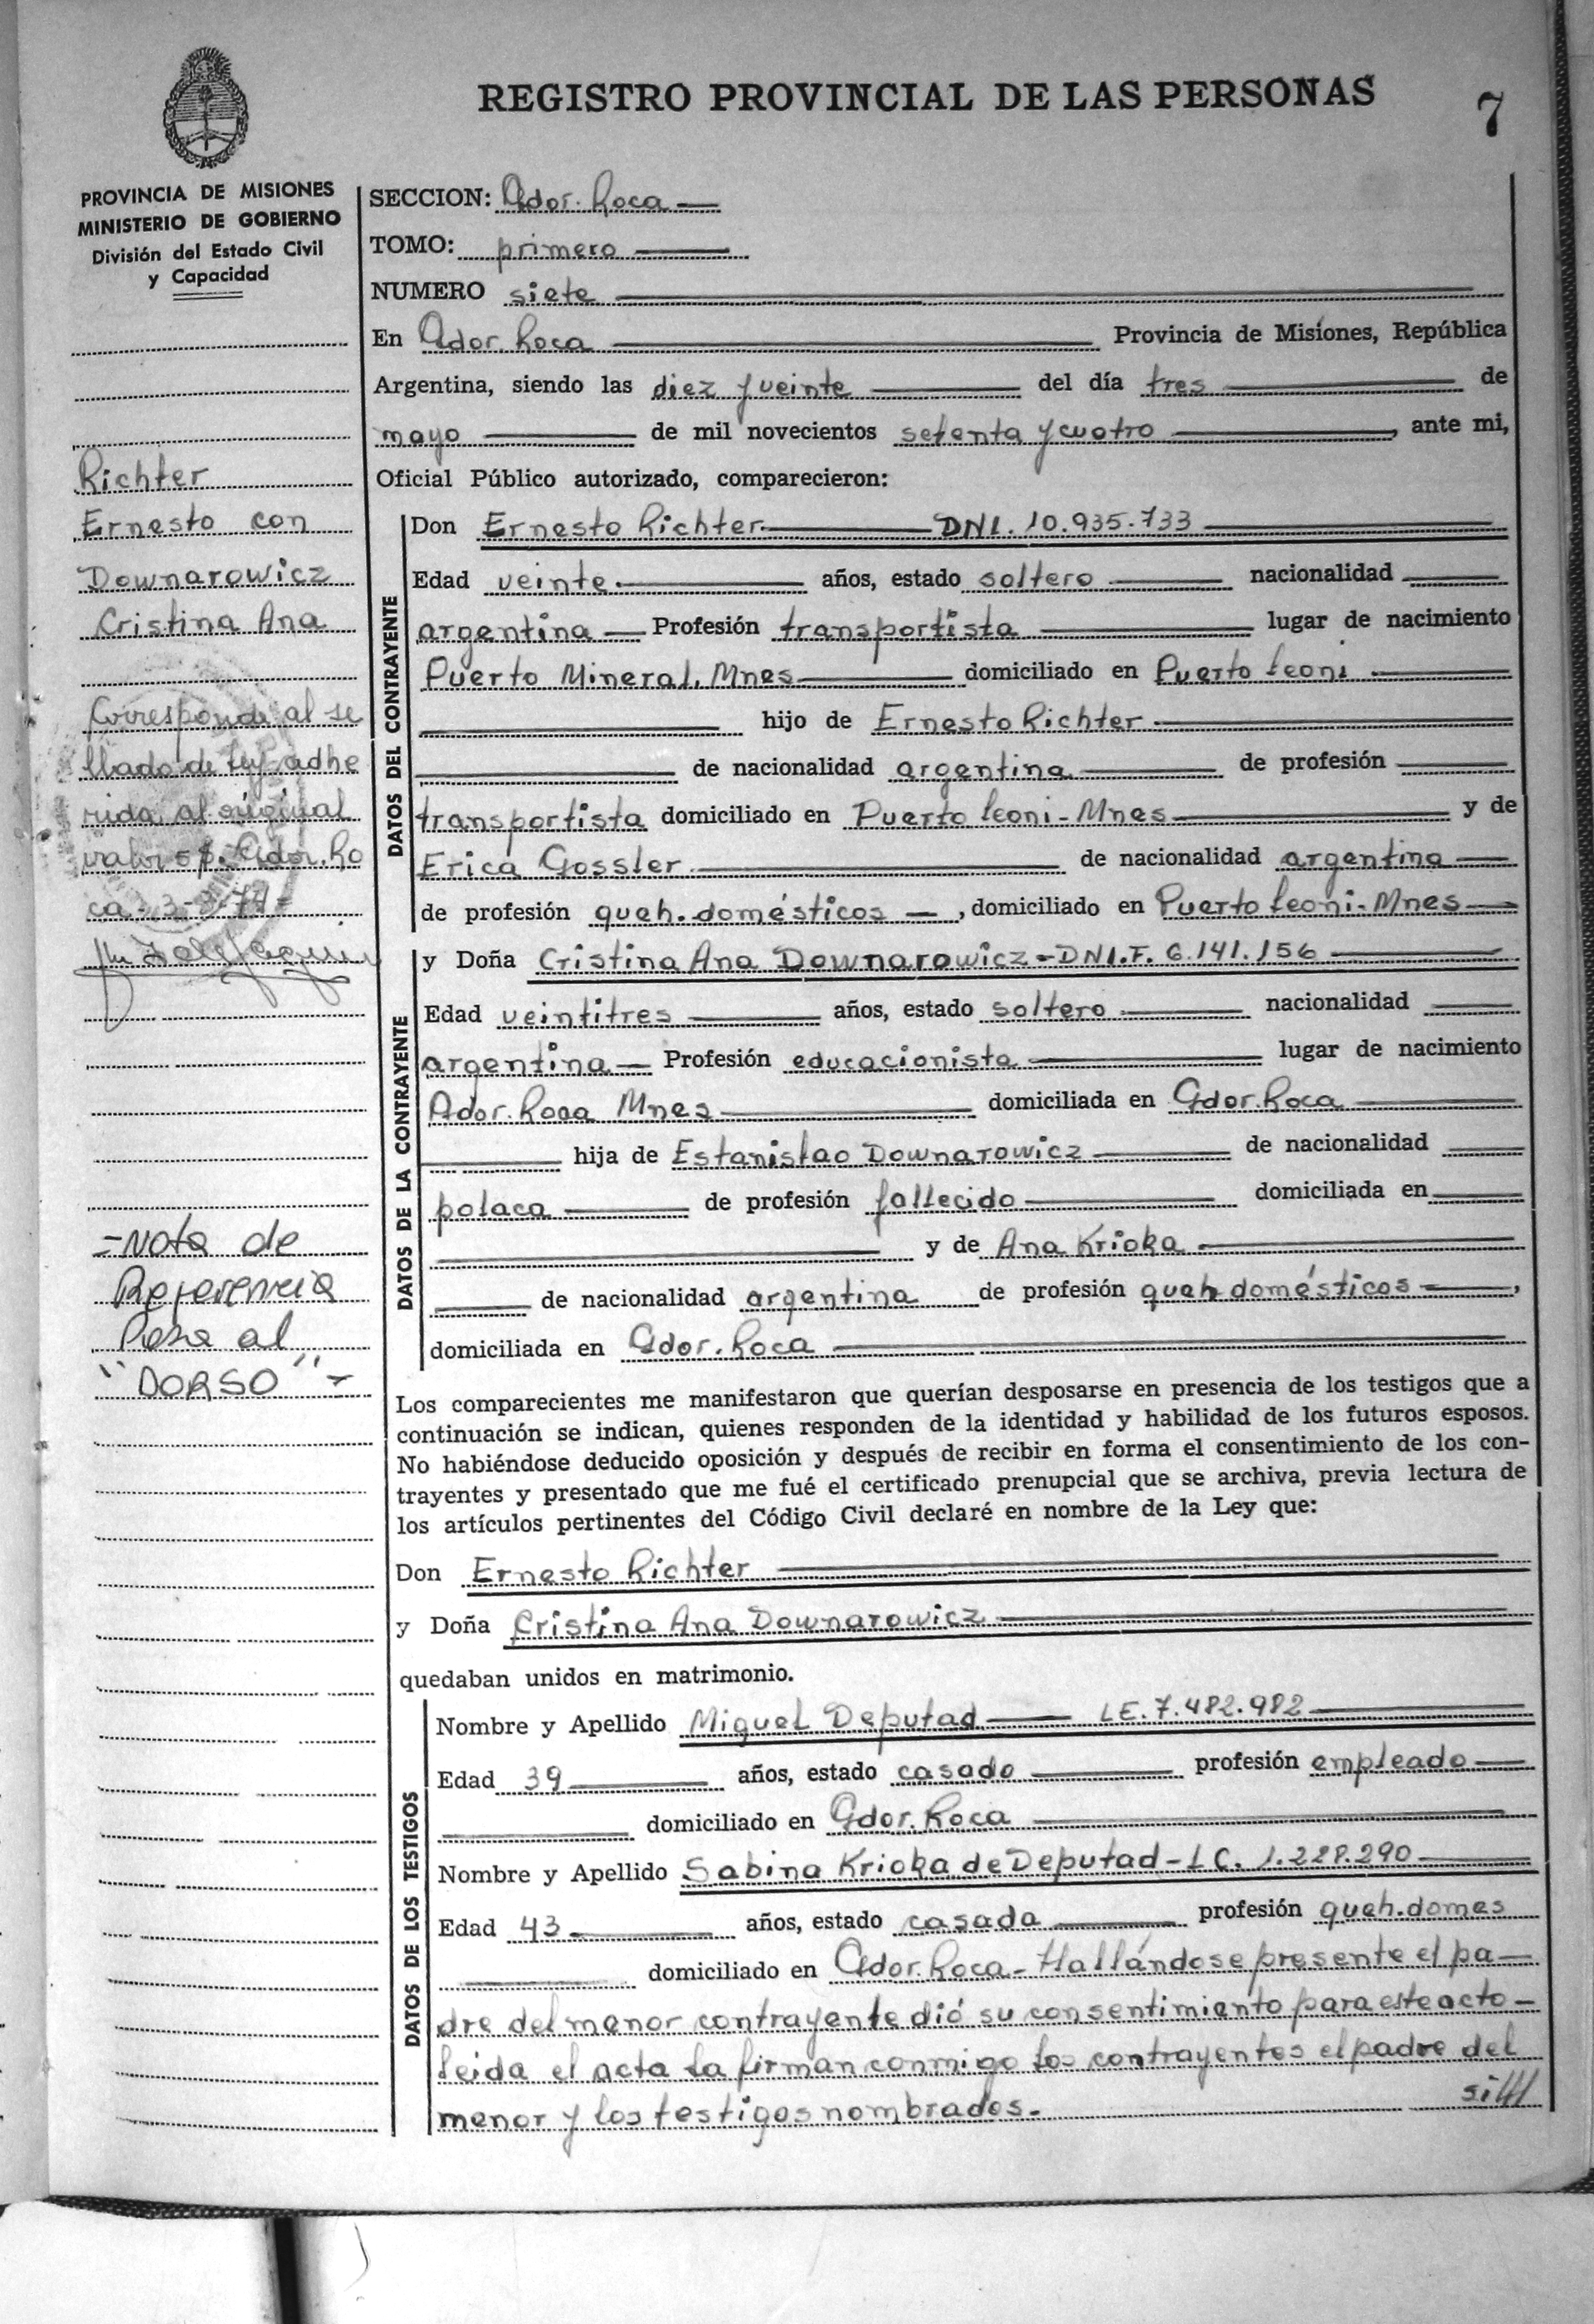 REGISTRO PROVINCIAL DE LAS PERSONAS
7
PROVINCIA DE MISIONES
MINISTERIO DE GOBIERNO
División del Estado Civil
y Capacidad
SECCION: Gdor. Roca
TOMO: primero
NUMERO siete
En Gdor. Roca Provincia de Misiones, República
Argentina, siendo las diez y veinte del día tres de
mayo de mil novecientos setenta y cuatro, ante mi,
Oficial Público autorizado, comparecieron:
Richter
Ernesto con
Downarowicz
Cristina Ana
Corresponde al se
llado de ley adhe
rida al original
valor 5 $. Gdor. Ro
ca
=Nota de
Referencia
Pasa al
"DORSO"=
DATOS DEL CONTRAYENTE
Don Ernesto Richter DNI. 10.935.733
Edad veinte. años, estado soltero nacionalidad
argentina Profesión transportista lugar de nacimiento
Puerto Mineral. Mnes domiciliado en Puerto Leoni
hijo de Ernesto Richter
de nacionalidad argentina de profesión
transportista domiciliado en Puerto Leoni-Mnes y de
Erica Gossler de nacionalidad argentina
de profesión queh. domésticos, domiciliado en Puerto Leoni-Mnes
DATOS DE LA CONTRAYENTE
y Doña Cristina Ana Downarowicz-DNI.F. 6.141.156
Edad veintitres años, estado soltero nacionalidad
argentina Profesión educacionista lugar de nacimiento
Gdor. Roca Mnes domiciliada en Gdor. Roca
hija de Estanislao Downarowicz de nacionalidad
polaca de profesión fallecido domiciliada en
y de Ana Krioka
de nacionalidad argentina de profesión queh domésticos,
domiciliada en Gdor. Roca
Los comparecientes me manifestaron que querían desposarse en presencia de los testigos que a
continuación se indican, quienes responden de la identidad y habilidad de los futuros esposos.
No habiéndose deducido oposición y después de recibir en forma el consentimiento de los con-
trayentes y presentado que me fué el certificado prenupcial que se archiva, previa lectura de
los artículos pertinentes del Código Civil declaré en nombre de la Ley que:
Don Ernesto Richter
y Doña Cristina Ana Downarowicz
quedaban unidos en matrimonio.
DATOS DE LOS TESTIGOS
Nombre y Apellido Miguel Deputad LE. 7.482.982
Edad 39 años, estado casado profesión empleado
domiciliado en Gdor. Roca
Nombre y Apellido Sabina Krioka de Deputad-LC. 1.228.290
Edad 43 años, estado casada profesión queh. domes
domiciliado en Gdor. Roca- Hallándose presente el pa-
dre del menor contrayente dió su consentimiento para este acto-
leida el acta la firman conmigo los contrayentes el padre del
menor y los testigos nombrados.